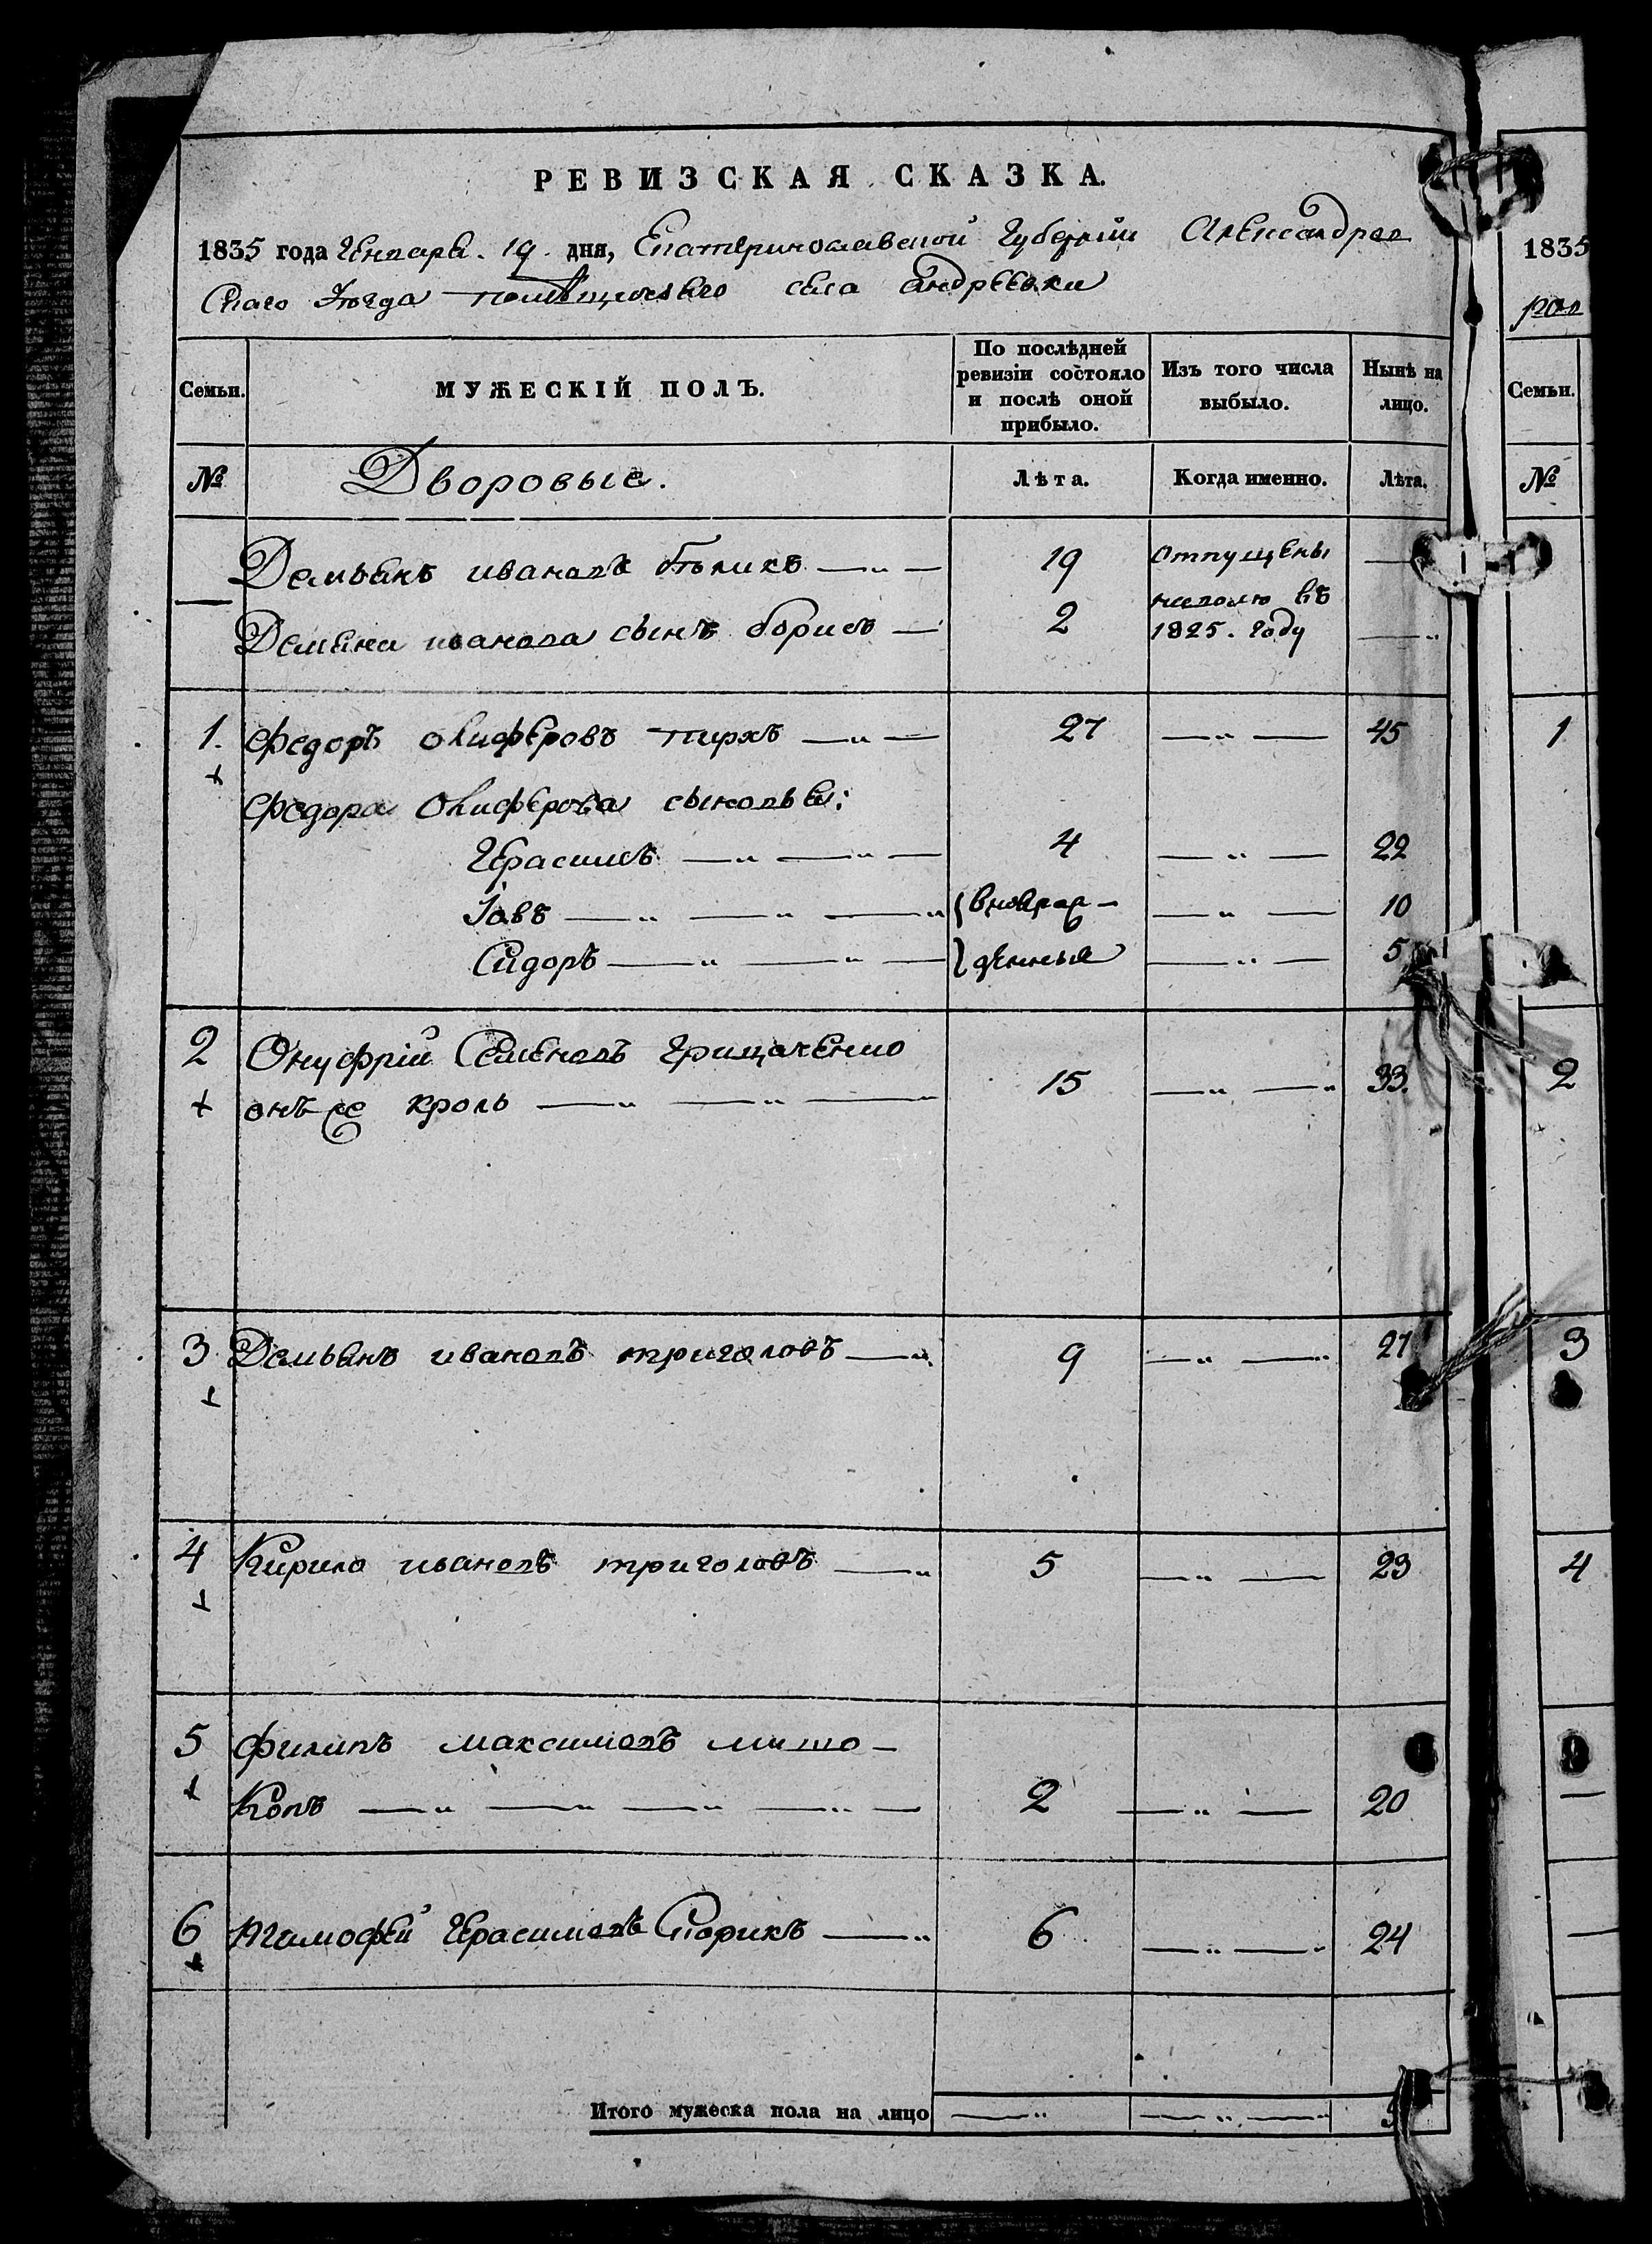 РЕВИЗСКАЯ СКАЗКА.
1835 года Генваря. 19. дня, Екатеринославской Губерніи Александров
скаго Уѣзда помѣщичьяго села Андреевки
Семьи.
МУЖЕСКІЙ ПОЛЪ.
По послѣдней ревизіи состояло и послѣ оной прибыло.
Изъ того числа выбыло.
Нынѣ на лицо.
№
Дворовые.
Лѣта.
Когда именно.
Лѣта.
Демьянъ ивановъ бѣликъ —„— 19 отпущены —
Демьяна иванова сынъ борисъ — 2 наволю въ 1825. году —„
1. Федоръ Олиферовъ тиръ —„— 27 —„— 45
Федора Олиферова сыновья:
Герасимъ —„—„— 4 —„— 22
Іовъ —„—„—„ вновърож- —„— 10
Сидоръ —„—„— денныя —„— 5
2 Онуфрій Семеновъ Грицаченко
онъ же кроль —„—„— 15 —„—„ 33.
3 Демьянъ ивановъ триголовъ —„ 9 —„—„ 27
4 Кирило ивановъ триголовъ —„ 5 —„— 23
5 Филипъ максимовъ мишо-
Копъ —„—„—„—„— 2 —„— 20
6 тимофей Герасимовъ —„ 6 —„—„ 24
Итого мужеска пола на лицо —„ —„—„
1835
Семьи.
№
1
2
3
4